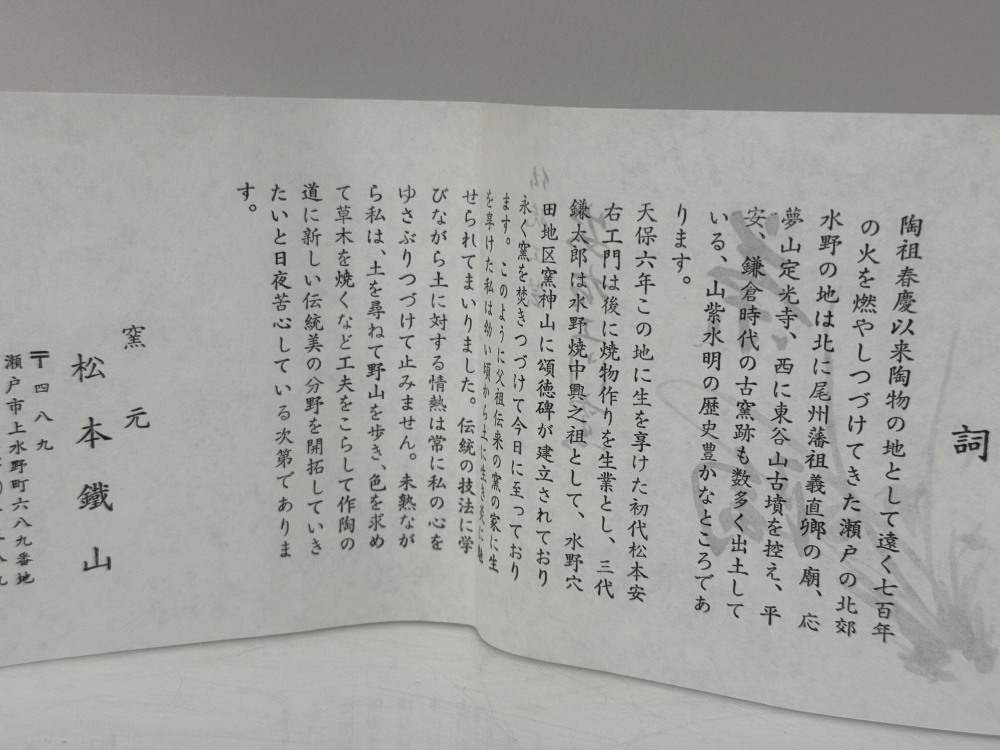 詞
陶祖春慶以来陶物の地として遠く七百年
の火を燃やしつづけてきた瀬戸の北郊
水野の地は北に尾州藩祖義直卿の廟、応
夢山定光寺、西に東谷山古墳を控え、平
安、鎌倉時代の古窯跡も数多く出土して
いる、山紫水明の歴史豊かなところであ
ります。
天保六年この地に生を享けた初代松本安
右エ門は後に焼物作りを生業とし、三代
鎌太郎は水野焼中興之祖として、水野穴
田地区窯神山に頌徳碑が建立されており
永く窯を焚きつづけて今日に至っており
ます。このように父祖伝来の窯の家に生
を享けた私は幼い頃から土に生き炎に魅
せられてまいりました。伝統の技法に学
びながら土に対する情熱は常に私の心を
ゆさぶりつづけて止みません。未熟なが
ら私は、土を尋ねて野山を歩き、色を求め
て草木を焼くなど工夫をこらして作陶の
道に新しい伝統美の分野を開拓していき
たいと日夜苦心している次第でありま
す。
窯元
松本鐵山
〒四八九
瀬戸市上水野町六八九番地